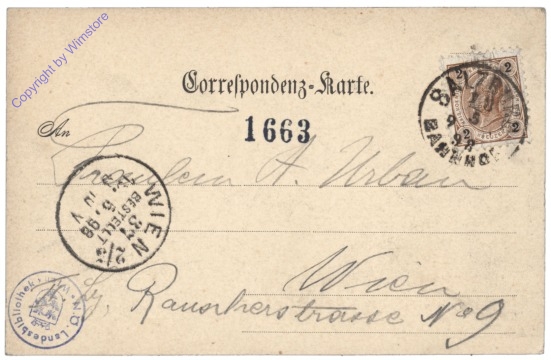 Copyright by Wimstore
Correspondenz-Karte.
2 2
2 2
An
1663
SALZB
BAHNHOF
Fräulein A. Urban
WIEN 2/3
37
BESTELLT
5.98
IV V
Wien
Rauscherstrasse No 9
N.Ö. Landesbibliothek